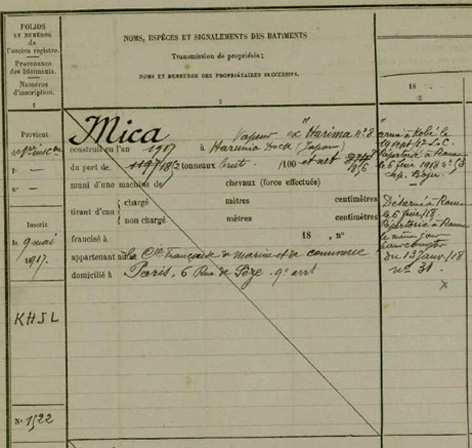 FOLIOS
ET NUMÉROS
de
l'ancien registre.
Provenance
des bâtiments.
Numéros
d'inscription.
1
NOMS, ESPÈCES ET SIGNALEMENTS DES BÂTIMENTS
Transmission de propriété;
NOMS ET DEMEURES DES PROPRIÉTAIRES SUCCESSIFS.
2
18
3
Mica
Vapeur ex "Harima n° 8"
Provient
construit en l'an 1917 à Harima Dock (Japon)
du port de tonneaux brut /100 et net
n° —
muni d'une machine de chevaux (force effectuée)
n° —
tirant d'eau
chargé mètres centimètres
non chargé mètres centimètres
Inscrit
le 9 mai
1917.
francisé à 18 , n°
appartenant à la Cie Française de marine et de commerce
domicilié à Paris, 6 Rue de Sèze 9e arrt
armé à Kobé le
le 6 févr 1918 n° 53
Désarmé à Rouen
le 6 févr /18
Répertorié à Rouen
le même jour
du 13 janv /18
n° 31
KHSL
N° 1522